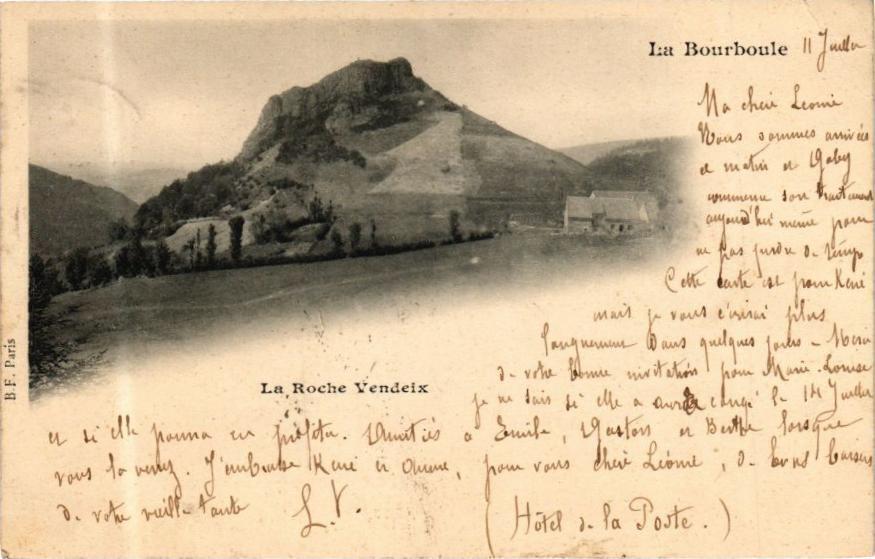 La Bourboule 11 Juillet
Ma chère Léonie
Nous sommes arrivées
ce matin et Gaby
commence son traitement
aujourd'hui même pour
ne pas perdre de temps
Cette carte est pour René
mais je vous écrirai plus
longuement dans quelques jours - Merci
de votre bonne invitation pour Marie-Louise
je ne sais si elle a congé le 14 Juillet
La Roche Vendeix
et si elle pourra en profiter. Amitiés à Emile, Gaston et Berthe lorsque
vous la verrez. J'embrasse René et, pour vous chère Léonie, de bons baisers
de votre vieille tante L. V. (Hôtel de la Poste.)
B.F. Paris